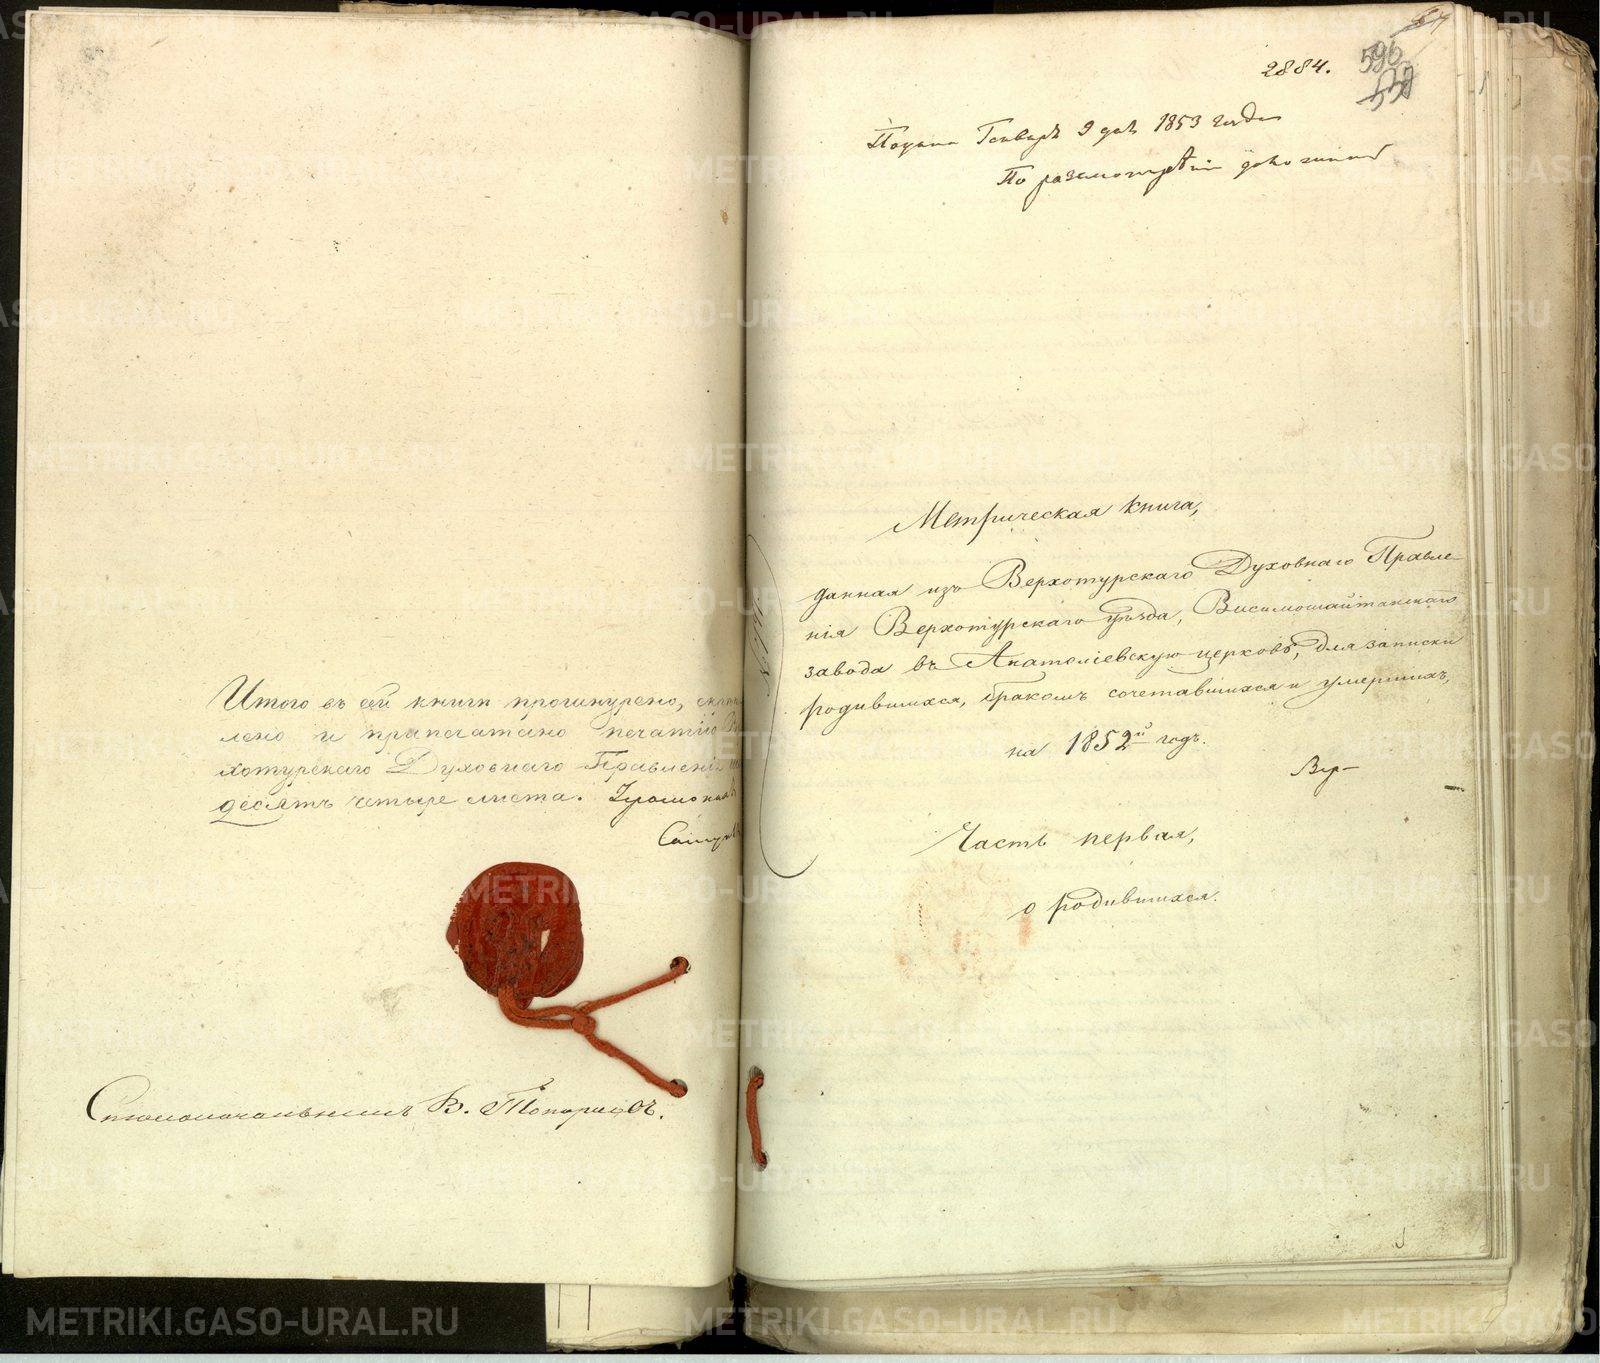 Итого въ сей книги прошнурено, скреп
лено и припечатано печатію В
хотурскаго Духовнаго Правленія
десять четыре листа.
Столоначальникъ В. Топорковъ.
2884.
596
Подана Генваря 9 дня 1853 года
По разсмотрѣніи
Метрическая книга,
данная изъ Верхотурскаго Духовнаго Правле
нія Верхотурскаго уѣзда, Висимошайтанскаго
завода въ Анатоліевскую церковь, для записки
родившихся, бракомъ сочетавшихся и умершихъ,
на 1852й годъ.
Вер-
Часть первая,
о родившихся.
METRIKI.GASO-URAL.RU